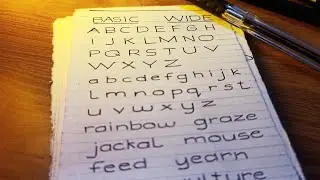 BASIC WIDE
A B C D E F G H
I J K L M N O
P Q R S T U V
W X Y Z
a b c d e f g h i j k
l m n o p q r s t
u v w x y z
rainbow graze
jackal mouse
feed yearn